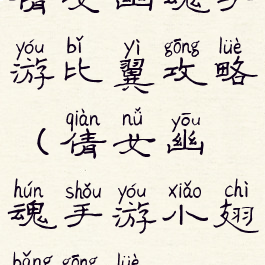 倩女幽魂手
yóu bǐ yì gōng lüè
游比翼攻略
qiàn nǚ yōu
（倩女幽
hún shǒu yóu xiǎo chì
魂手游小翅
bǎng gōng lüè